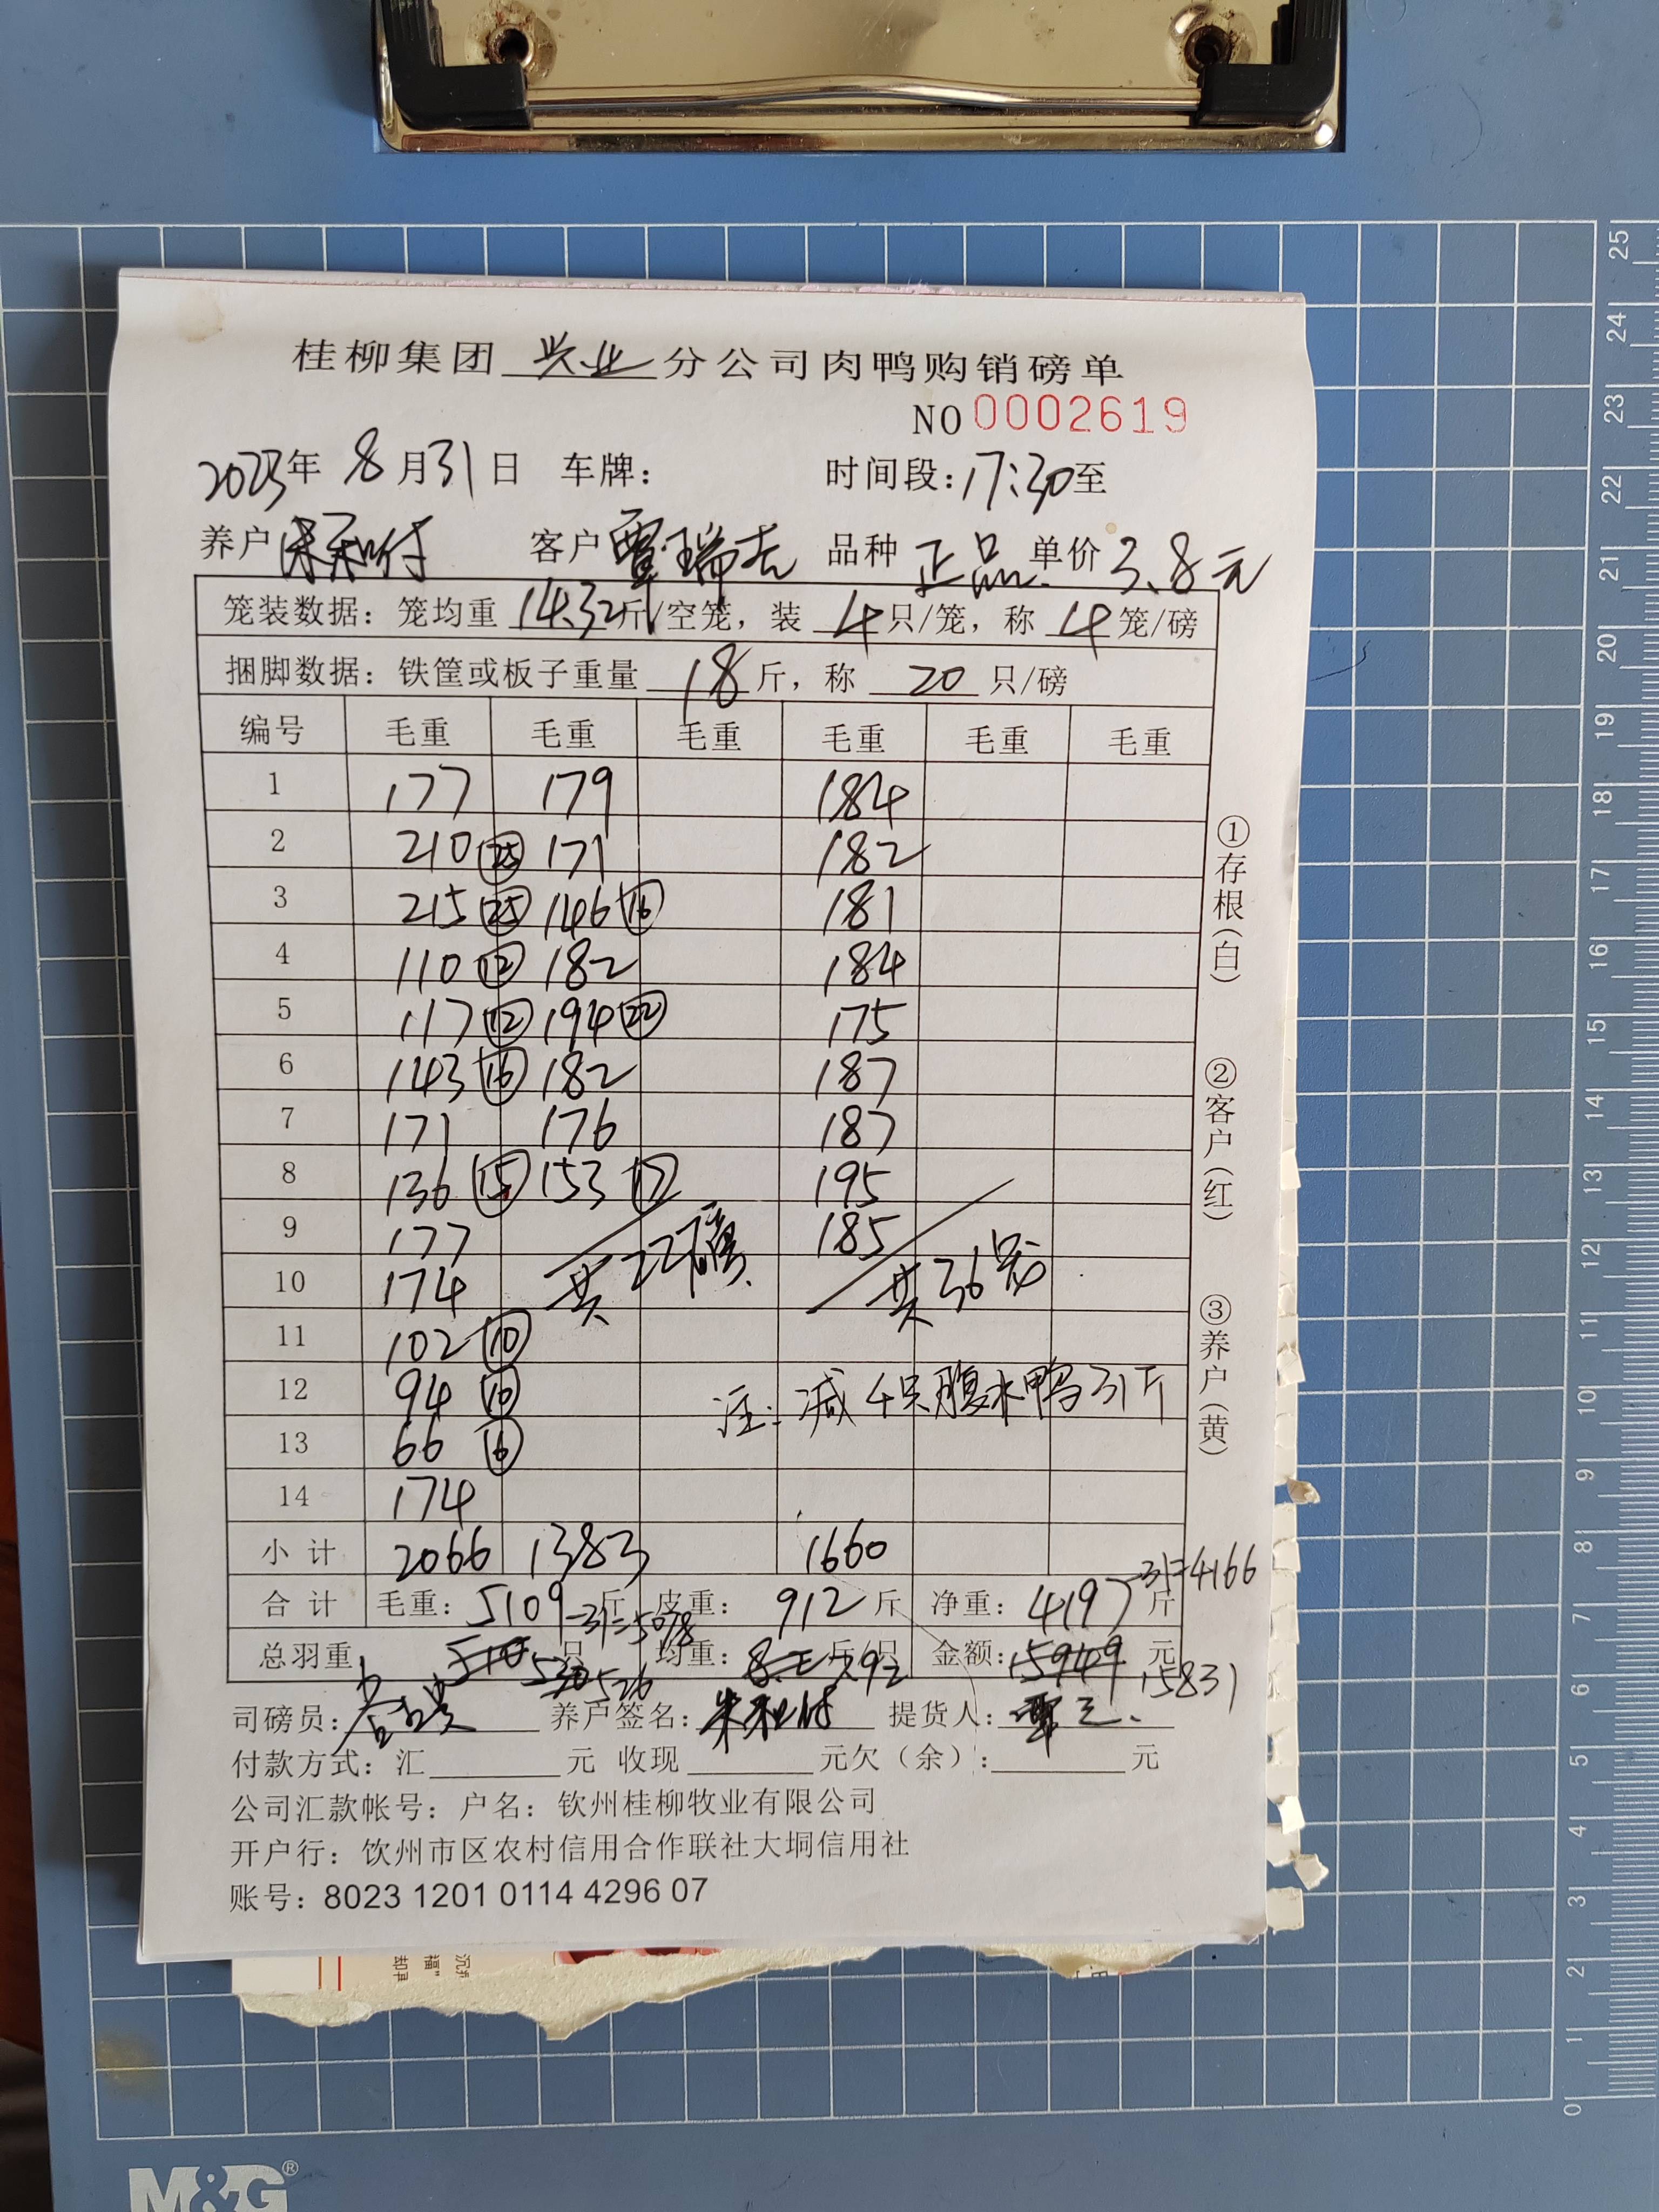 桂柳集团 兴业 分公司肉鸭购销磅单
NO 0002619
2023年 8月31日 车牌： 时间段：17:30至
养户 朱和付 客户 覃瑞 品种 正品 单价 3.8元
笼装数据：笼均重 14.32斤/空笼，装 4只/笼，称 4笼/磅
捆脚数据：铁筐或板子重量 18斤，称 20 只/磅
编号 毛重 毛重 毛重 毛重 毛重 毛重
1 177 179 184
2 210 (25) 171 182
3 215 (25) 146 (16) 181
4 110 (12) 182 184
5 117 (12) 194 (22) 175
6 143 (16) 182 187
7 171 176 187
8 136 (15) 153 (17) 195
9 177 185
共22磅 共36笼
10 174
11 102 (10)
12 94 (10)
注：减4只腹水鸭31斤
13 66 (6)
14 174
小计 2066 1383 1660
合计 毛重：5109斤 -31=5078 皮重：912斤 净重：4197斤 -31=4166
总羽重 530 526 只 均重：7.92 斤/只 金额：15949 元 15831
司磅员： 养户签名：朱和付 提货人：
付款方式：汇 元 收现 元欠（余）： 元
公司汇款帐号：户名：钦州桂柳牧业有限公司
开户行：饮州市区农村信用合作联社大垌信用社
账号：8023 1201 0114 4296 07
①存根（白） ②客户（红） ③养户（黄）
25
24
23
22
21
20
19
18
17
16
15
14
13
12
11
10
9
8
7
6
5
4
3
2
1
0
M&G®